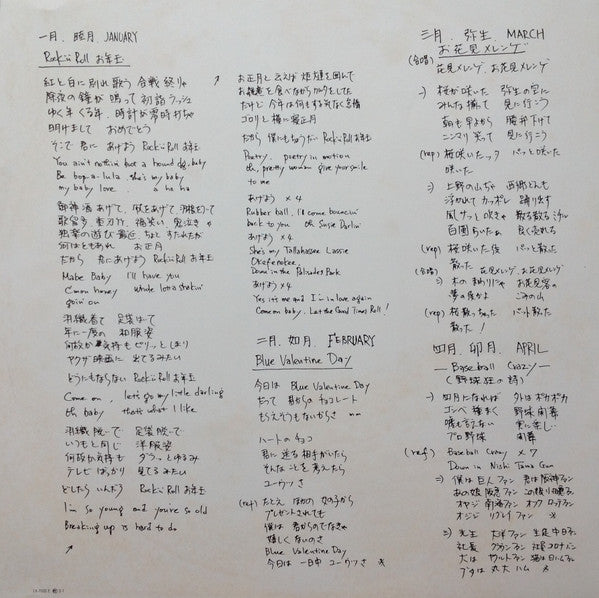 一月. 睦月. JANUARY
Rock'n Roll お年玉
紅と白に別れ歌う 合戦 終りゃ
除夜の鐘が 鳴って 初詣ラッシュ
ゆく年くる年. 時計が零時打ちゃ
明けまして おめでとう
そこで 君に あげよう Rock'n Roll お年玉
You ain't nothin but a hound dog, baby
Be bop-a-lula, she's my baby
my baby love. a ha ha
御神酒あげて. 杖をあげて 羽根をつって
何はともあれ お正月
だから 君にあげよう Rock'n Roll お年玉
Mabe Baby I'll have you
C'mon honey whole lotta shakin'
goin' on
羽織着て 足袋はいて
年に一度の 和服姿
何故か気持も ピリッと しまり
ヤクザ映画に 出てるみたい
どうにもならない Rock'n Roll お年玉
Come on, let's go my little darling
oh baby that's what I like
羽織脱いで 足袋脱いで
いつもと同じ 洋服姿
何故か気持も ダラッとゆるみ
テレビばっかり 見てるみたい
どしたらいんだろ Rock'n Roll お年玉
I'm so young and you're so old
Breaking up is hard to do
お正月と云えば 炬燵を囲んで
お雑煮を食べながらカルタをしてた
だけど 今年は何もする気なく
ゴロリと横に寝正月
だから 僕にもちょうだい Rock'n Roll お年玉
Poetry. poetry in motion
oh, pretty woman give your smile
to me
あげよう ×4
Rubber ball, I'll come bouncin'
back to you oh Susie Darlin'
あげよう ×4
She's my Tallahassee Lassie
Okefenokee,
Down in the Palisades Park
あげよう ×4
Yes it's me and I'm in love again
Come on baby. Let the Good Times Roll!
二月. 如月. FEBRUARY
Blue Valentine Day
今日は Blue Valentine Day
だって 君からのチョコレート
もらえそうもないからさ
ハートのチョコ
君に 送る相手がいたら
そんなことを考えたら
ユーウツさ
(rep) たとえ ほかの女の子から
プレゼントされても
僕は 君からのでなきゃ
嬉しくないのさ
Blue Valentine Day
今日は 一日中 ユーウツさ
三月. 弥生. MARCH
お花見メレンゲ
(合唱) 花見メレンゲ. お花見メレンゲ
桜が咲いた 弥生の空に
みんな揃って 見に行こう
朝も早よから 勝井下げて
ニンマリ笑って 見に行こう
(rep) 桜咲いたッタ パッと咲いた
咲いた
上野の山ぢゃ 西郷どんも
浮かれて カッポレ 踊り出す
(rep) 桜咲いた後 パッと散った
散った
(合唱) 花見メレンゲ. お花見メレンゲ
木のまわりにゃ お花見客の
夢の後かよ ごみの山
(rep) 桜散っちゃった パット散った
散った!
四月. 卯月. APRIL
— Baseball Crazy —
(野球狂の詩)
四月になれば 外はポカポカ
ゴンベ種まく 野球開幕
プロ野球 開幕
(ref) Baseball Crazy ×7
Down in Nishi Tama Gun
僕は 巨人ファン 君は阪神ファン
あの娘 阪急ファン
オヤジ 南海ファン オフクロ ロッテファン
先生 大洋ファン 生徒 中日
社長 クラウンファン 社員 コロナバン
犬は ヤクルトファン 猫は日ハム
ブタは 丸大ハム